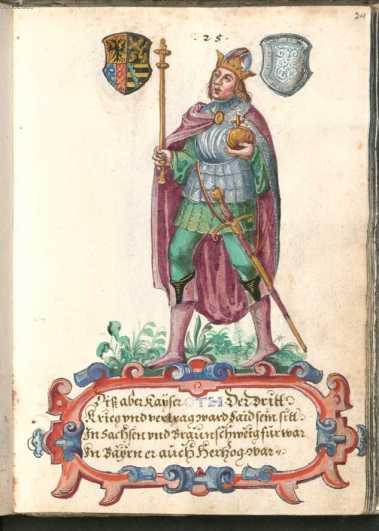 24
· 25 ·
Diß aber Kayser OTH Der dritt
Krieg vnd vertrag ward baid sein sitt
In Sachsen vnd Braunschweig fürwar
In Bayrn er auch Hertzog war